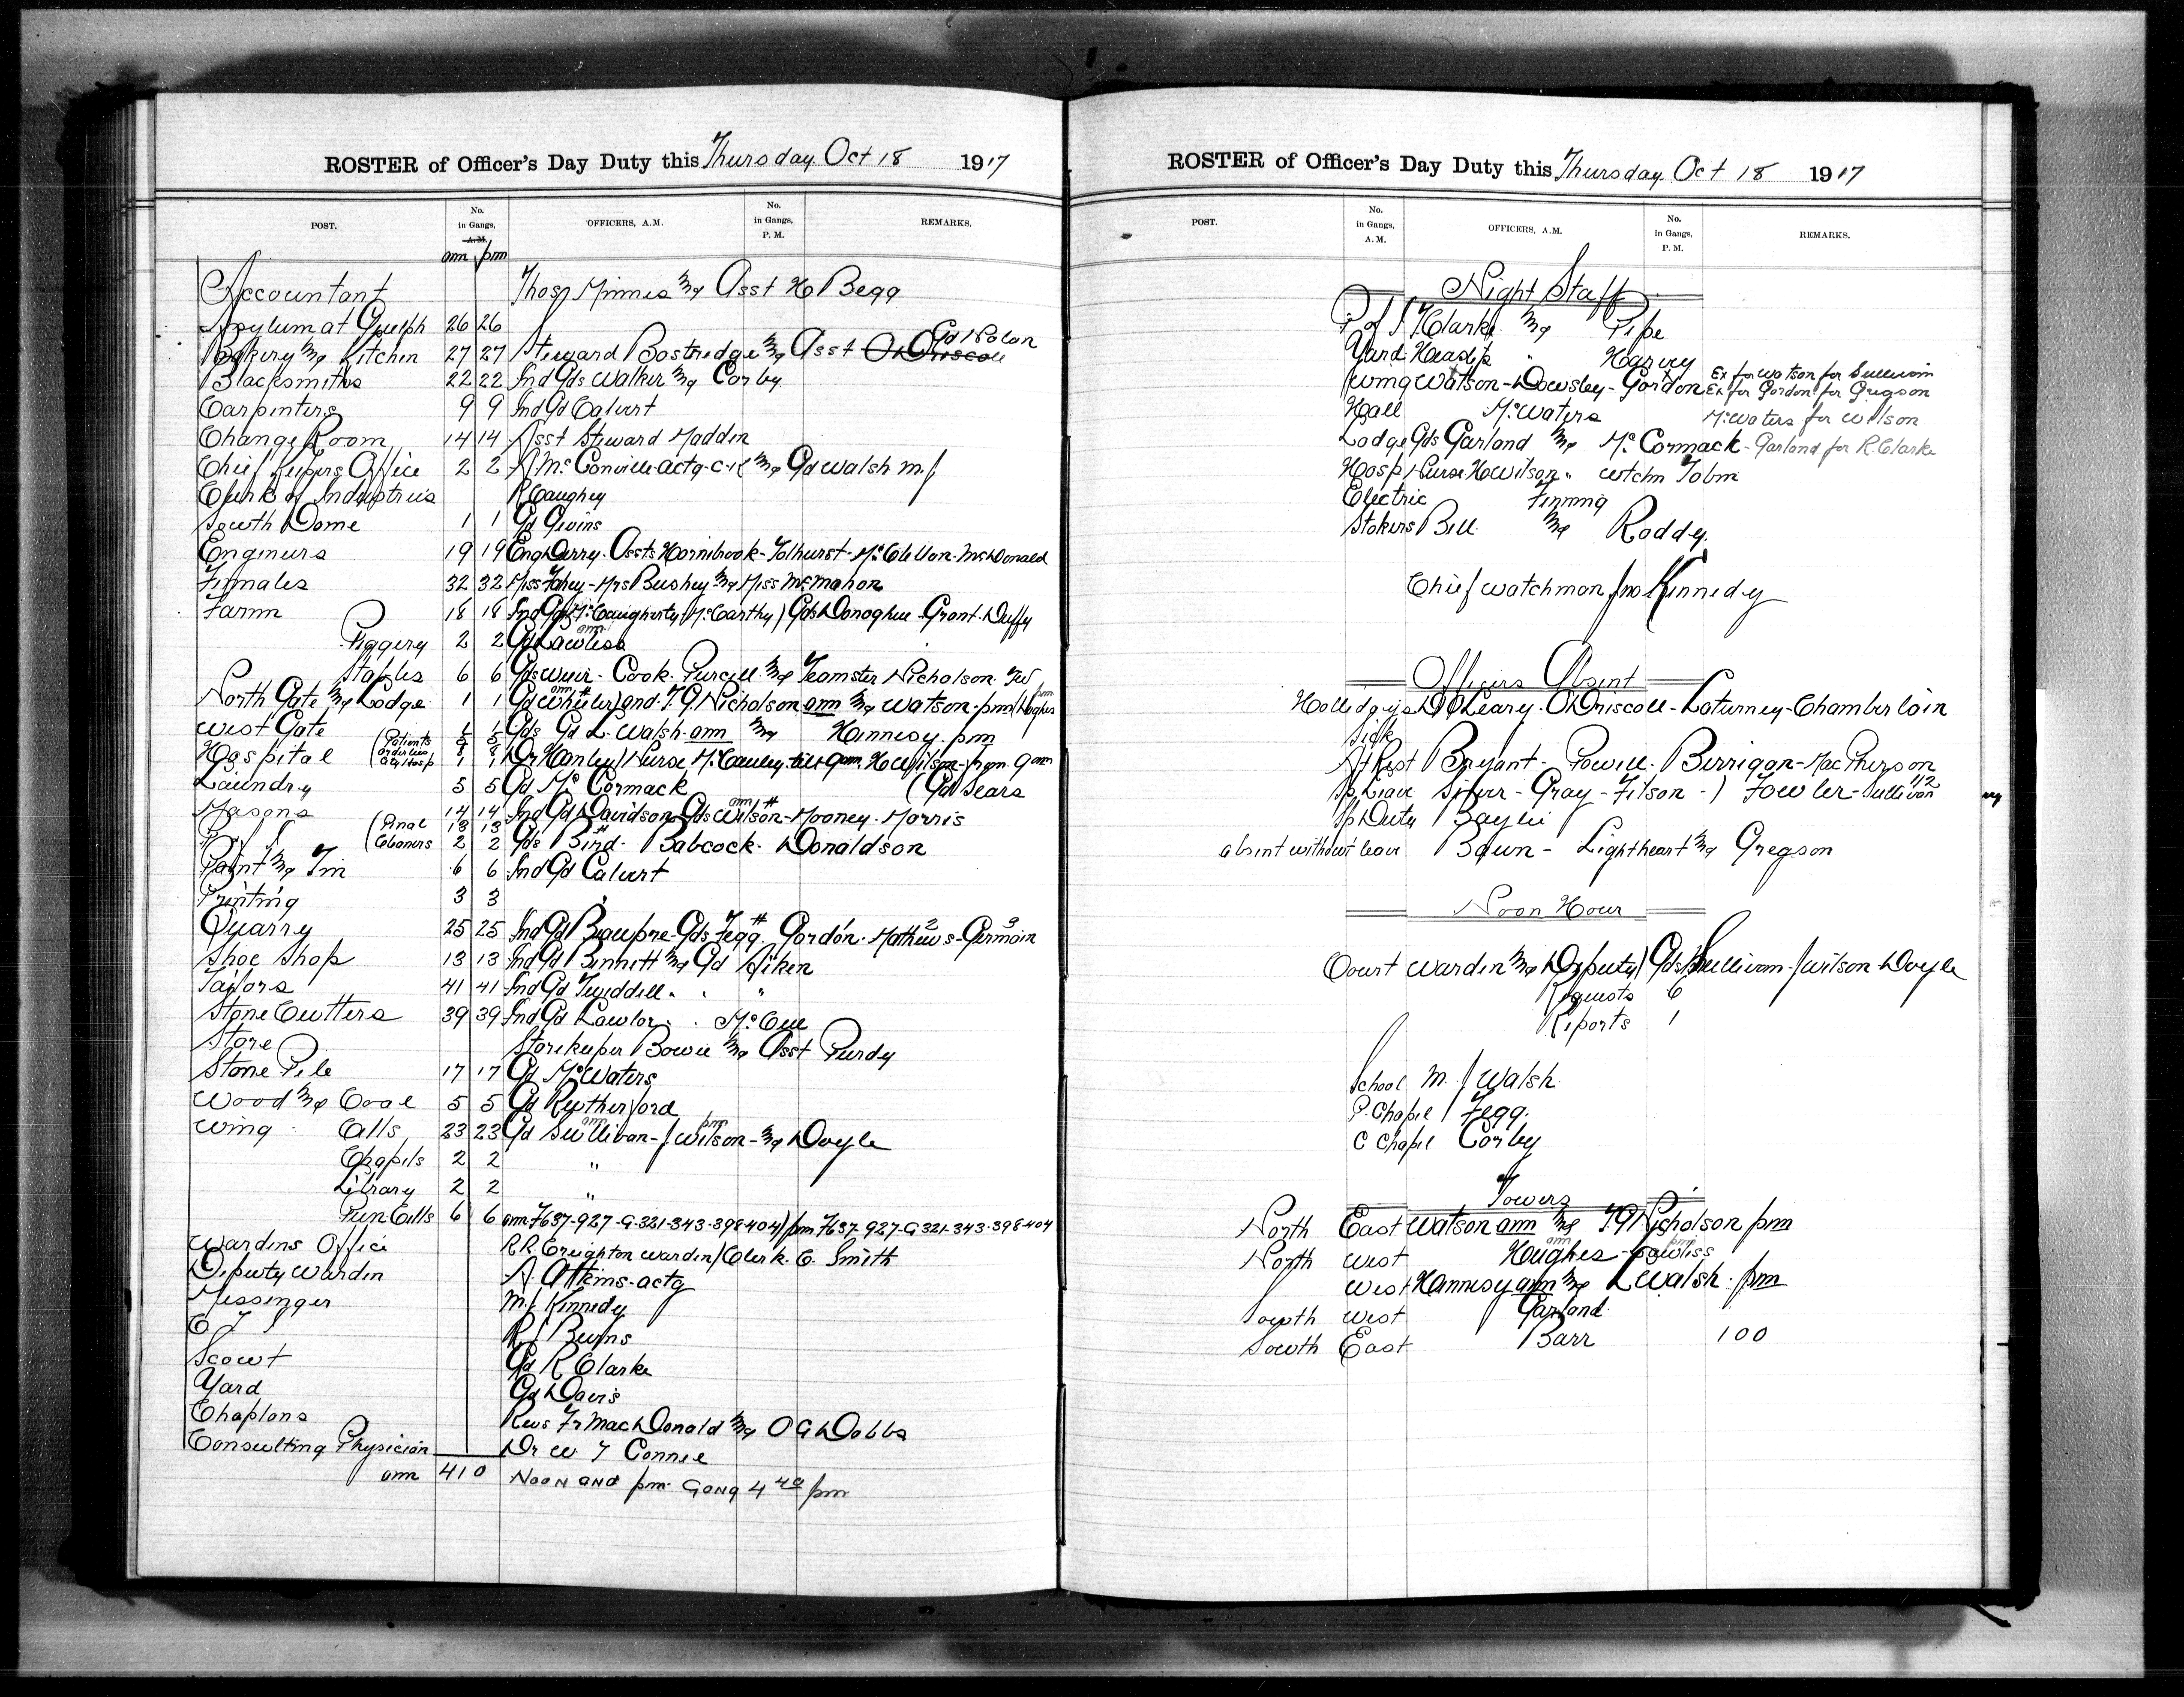 ROSTER of Officer's Day Duty this Thursday Oct 18 1917
POST. No. in Gangs, A.M. OFFICERS, A.M. No. in Gangs, P.M. REMARKS.
am pm
Accountant Asst H Begg
Asylum at Guelph 26 26
Bakery & Kitchen 27 27 Steward Bostridge & Asst O'Driscoll Gd Nolan
Blacksmiths 22 22 Ind Gds Walker & Corby
Carpenters 9 9 Ind Gd Calvert
Change Room 14 14 Asst Steward Madden
Chief Keepers Office 2 2 A McConville actg-C-K & Gd Walsh M.J
Clerk of Industries R Caughey
South Dome 1 1 Gd Givins
Engineers 19 19 Eng Derry. Assts Hornibrook-Tolhurst-McClellan-McDonald
Females 32 32 Miss Fahey-Mrs Bushey & Miss McMahon
Farm 18 18 Ind Gds McCaugherty (McCarthy) Gds Donoghue-Grant-Duffy
Piggery 2 2 Gd Lawless am
Stables 6 6 Gds Weir-Cook-Purcell & Teamster Nicholson
North Gate & Lodge 1 1 Gd Wheeler) and T.G. Nicholson am & Watson-pm (Hughes pm
West Gate Gds Gd L-Walsh-am & Hennesy. pm
Hospital (Patients Orderlies Dr Hanley) Nurse McCauley-till 9am, H Wilson-from 9am
Laundry 5 5 Gd McCormack (Gd Sears
Masons 14 14 Ind Gd Davidson Gds Wilson-Mooney-Morris
P of I (Penal 13 13
Cleaners 2 2 Gds Bird-Babcock-Donaldson
Paint & Tin 6 6 Ind Gd Calvert
Printing 3 3
Quarry 25 25 Ind Gd Beaupre-Gds Fegg. Gordon-Mathews-Germain
Shoe Shop 13 13 Ind Gd Bennett & Gd Aiken
Tailors 41 41 Ind Gd Tweddell " "
Stone Cutters 39 39 Ind Gd Lawlor " McCue
Store Storekeeper Bowie & Asst Purdy
Stone Pile 17 17 Gd McWaters
Wood & Coal 5 5 Gd Rutherford
Wing Cells 23 23 Gd Sullivan-J Wilson-& Doyle
Chapels 2 2 "
Library 2 2 "
Pun Cells 6 6 am F637-927-G-321-343-398-404) pm F637-927-G321-343-398-404
Wardens Office R.R. Creighton Warden) Clerk. C. Smith
Deputy Warden A. Atkins-actg
Messenger M.J Kennedy
C T R J Burns
Scout Gd R Clarke
Yard Gd Davis
Chaplons Revs Fr MacDonald & O G Dobbs
Consulting Physician Dr W T Connel
am 410 Noon and pm. Gong 4 40 pm
ROSTER of Officer's Day Duty this Thursday. Oct 18 1917
POST. No. in Gangs, A.M. OFFICERS, A.M. No. in Gangs, P.M. REMARKS.
Night Staff
P of I T. Clarke & Pipe
Yard Heaslip " Harvey
Wing Watson-Dowsley-Gordon Ex for Watson for Sullivan
Ex for Gordon for Gregson
Hall McWaters McWaters for Wilson
Lodge Gds Garland & McCormack-Garland for R. Clarke
Hosp Nurse H Wilson " Wtchm Tobin
Electric Fenning
Stokers Bell & Roddy.
Chief Watchman Jno Kennedy
Officers Absent
Hollidays D O'Leary-O'Driscoll-Laturney-Chamberlain
Sick
At Rest Bryant-Powell-Berrigan-MacPherson
Sp Leave Silver-Gray-Filson-) Fowler-Sullivan 1/2
Sp Duty Baylie
absent without leave Bawn-Lightheart & Gregson
Noon Hour
Court Warden & Deputy) Gds Sullivan-J Wilson-Doyle
Requests 6
Reports 1
School M. J Walsh
P. Chapel Fegg.
C Chapel Corby
Towers
North East Watson am & T G Nicholson pm
North West Hughes am-Lawless pm
West Hennesy am & L Walsh. pm
South West Garland
South East Barr 100